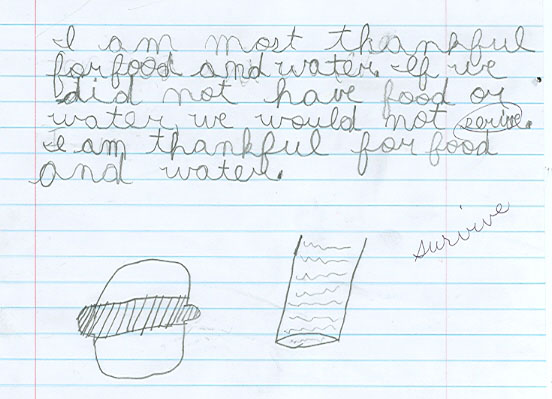 I am most thankful
for food and water. If we
did not have food or
water we would not
I am thankful for food
and water.
survive